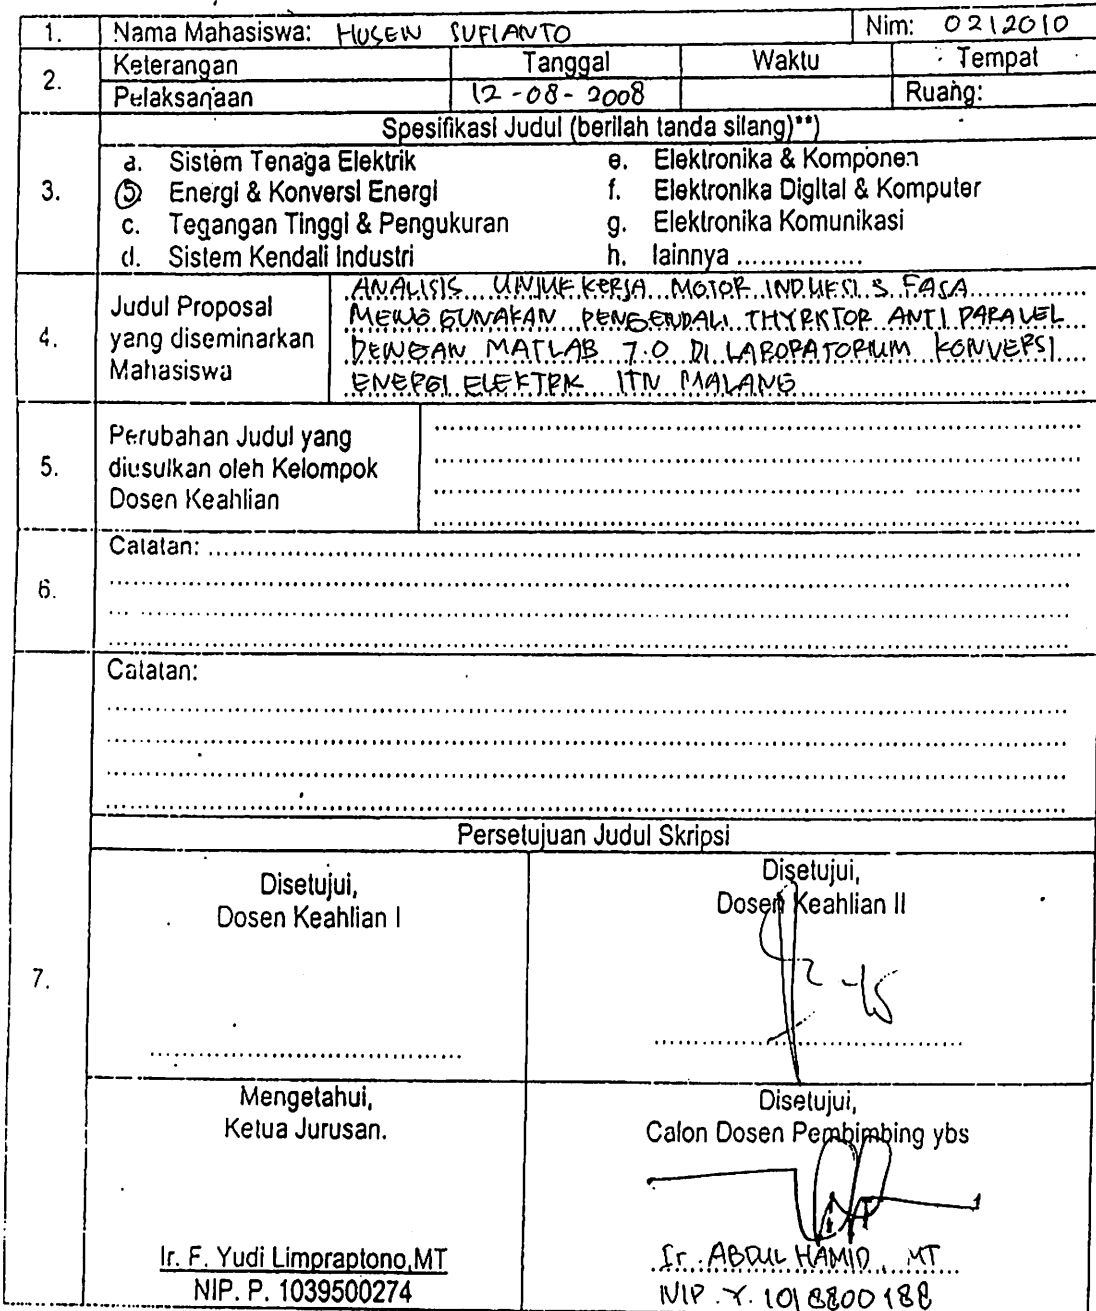 1. Nama Mahasiswa: HUSEIN SUFIANTO Nim: 0212010
2. Keterangan Tanggal Waktu Tempat
Pelaksanaan 12-08-2008 Ruang:
Spesifikasi Judul (berilah tanda silang)**)
3.
a. Sistem Tenaga Elektrik
b. Energi & Konversi Energi
c. Tegangan Tinggi & Pengukuran
d. Sistem Kendali Industri
e. Elektronika & Komponen
f. Elektronika Digital & Komputer
g. Elektronika Komunikasi
h. lainnya ................
4.
Judul Proposal
yang diseminarkan
Mahasiswa
ANALISIS UNJUK KERJA MOTOR INDUKSI 3 FASA
MENGGUNAKAN PENGENDALI THYRISTOR ANTI PARALEL
DENGAN MATLAB 7.0 DI LABORATORIUM KONVERSI
ENERGI ELEKTRIK ITN MALANG
5.
Perubahan Judul yang
diusulkan oleh Kelompok
Dosen Keahlian
6.
Catatan:
Catatan:
Persetujuan Judul Skripsi
7.
Disetujui,
Dosen Keahlian I
Disetujui,
Dosen Keahlian II
Mengetahui,
Ketua Jurusan.
Ir. F. Yudi Limpraptono,MT
NIP. P. 1039500274
Disetujui,
Calon Dosen Pembimbing ybs
Ir. ABDUL HAMID, MT
NIP. Y. 1018800188